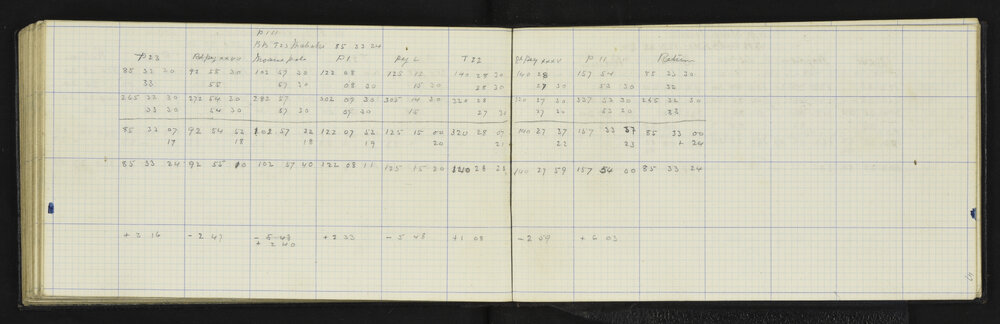 P 111
85 33 24
P 23 P 1 Peg L T 22 P 11 Return
85 33 30 92 55 30 102 57 30 122 08 125 15 140 28 30 140 28 157 54 85 33 30
33 55 57 30 08 30 15 30 28 30 27 30 53 30 33
265 33 30 272 54 30 282 57 302 07 30 305 14 30 320 28 320 27 30 337 53 30 265 32 30
33 30 54 30 57 30 07 30 15 27 30 27 30 53 30 33
85 33 07 92 54 52 102 57 22 122 07 52 125 15 00 320 28 07 140 27 37 157 53 37 85 33 00
17 18 18 19 20 21 22 23 + 24
85 33 24 92 55 10 102 57 40 122 08 11 125 15 20 140 28 28 140 27 59 157 54 00 85 33 24
+ 3 16 - 2 47 - 5 43 + 2 33 - 5 48 + 1 08 - 2 59 + 6 03
+ 2 40